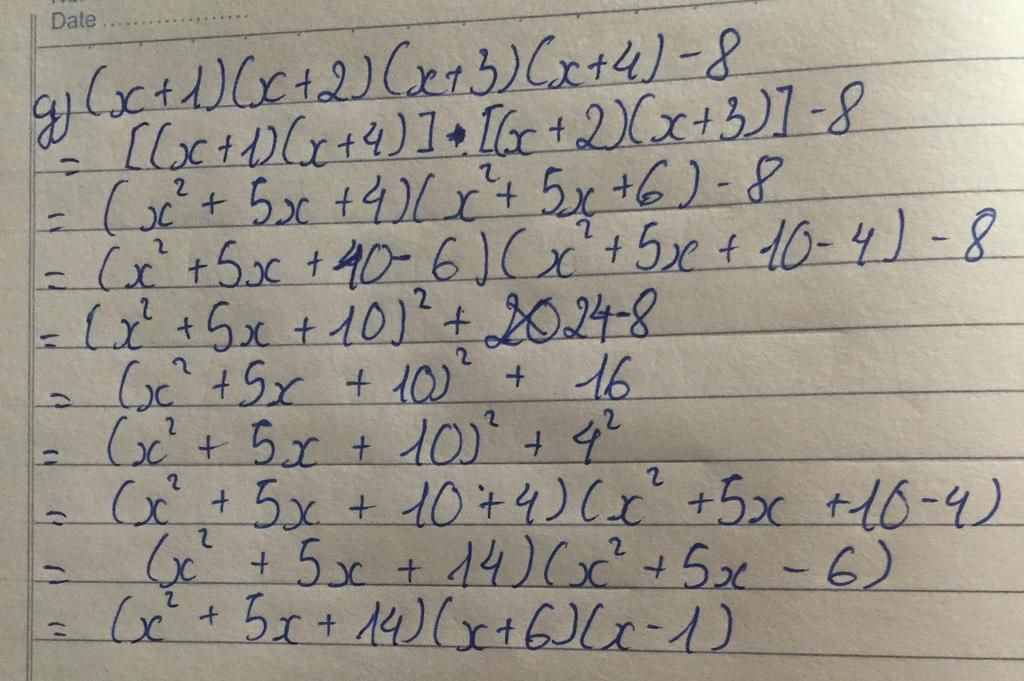 Date
g) (x+1)(x+2)(x+3)(x+4) - 8
= [(x+1)(x+4)] . [(x+2)(x+3)] - 8
= (x² + 5x + 4)(x² + 5x + 6) - 8
= (x² + 5x + 10 - 6)(x² + 5x + 10 - 4) - 8
= (x² + 5x + 10)² + 24 - 8
= (x² + 5x + 10)² + 16
= (x² + 5x + 10)² + 4²
= (x² + 5x + 10 + 4)(x² + 5x + 10 - 4)
= (x² + 5x + 14)(x² + 5x - 6)
= (x² + 5x + 14)(x + 6)(x - 1)